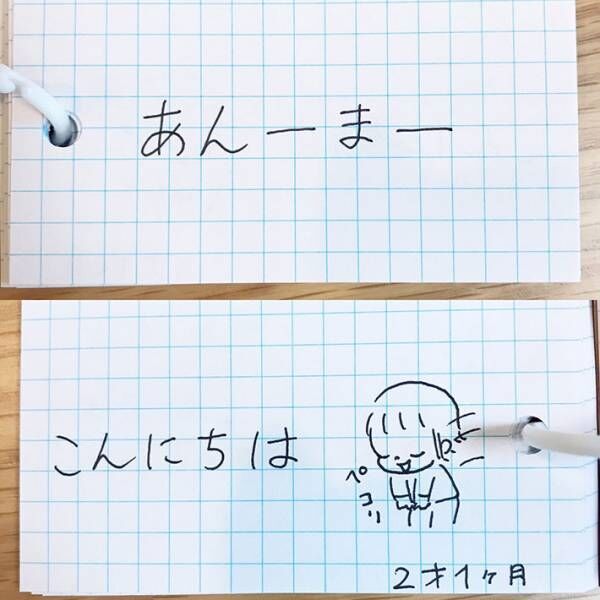 あんーまー
こんにちは
ペコリ
2才1ヶ月